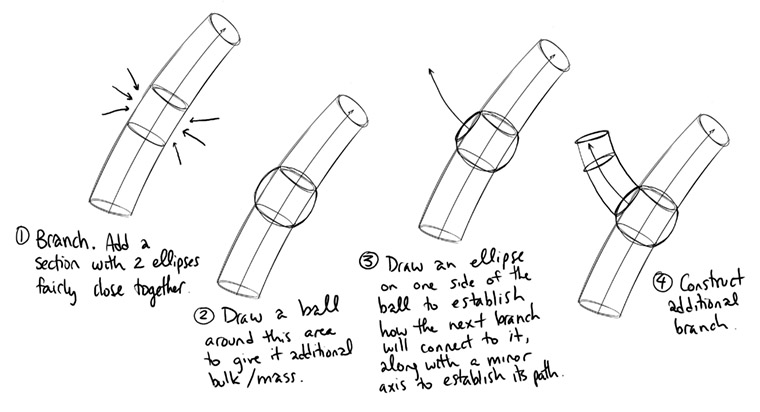 ① Branch. Add a
section with 2 ellipses
fairly close together.
② Draw a ball
around this area
to give it additional
bulk/mass.
③ Draw an ellipse
on one side of the
ball to establish
how the next branch
will connect to it,
along with a minor
axis to establish its path.
④ Construct
additional
branch.